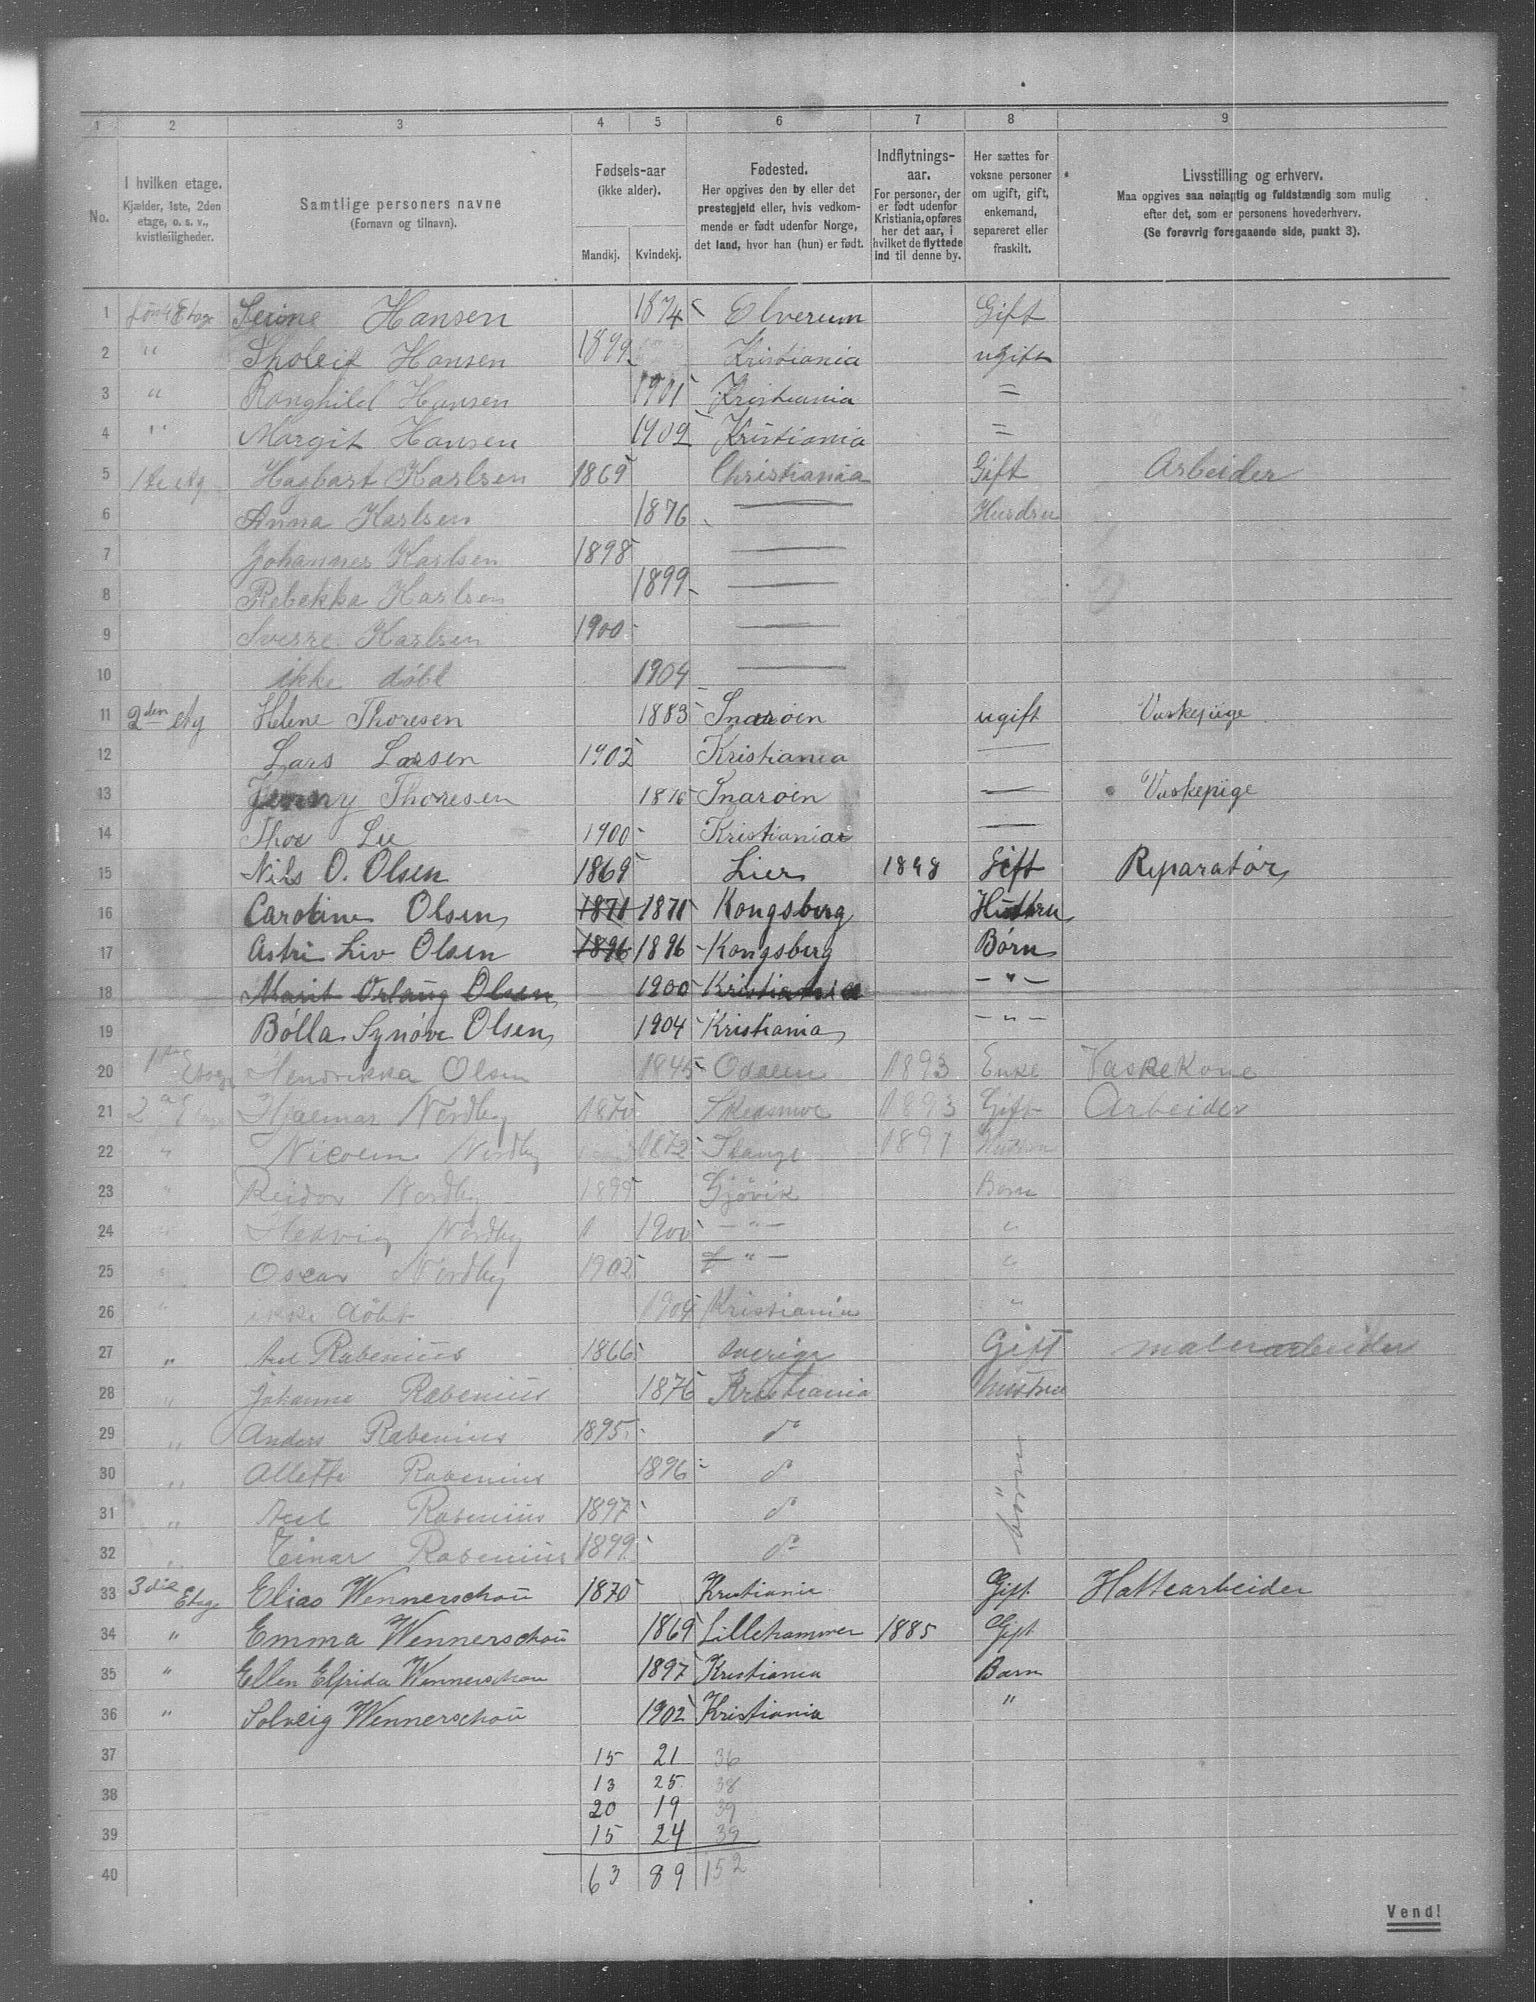 1 2 3 4 5 6 7 8 9
No.
I hvilken etage.
Kjælder, 1ste, 2den
etage, o. s. v.,
kvistleiligheder.
Samtlige personers navne
(Fornavn og tilnavn).
Fødsels-aar
(ikke alder).
Mandkj. Kvindekj.
Fødested.
Her opgives den by eller det
prestegjeld eller, hvis vedkom-
mende er født udenfor Norge,
det land, hvor han (hun) er født.
Indflytnings-
aar.
For personer, der
er født udenfor
Kristiania, opføres
her det aar, i
hvilket de flyttede
ind til denne by.
Her sættes for
voksne personer
om ugift, gift,
enkemand,
separeret eller
fraskilt.
Livsstilling og erhverv.
Maa opgives saa nøiagtig og fuldstændig som mulig
efter det, som er personens hovederhverv.
(Se forøvrig foregaaende side, punkt 3).
1 Hansen 1874 Elverum Gift
2 " Hansen 1899 Kristiania ugift
3 " Ranghild Hansen 1901 Kristiania =
4 " Margit Hansen 1902 Kristiania =
5 1te etg Hagbart Karlsen 1869 Christiania Gift Arbeider
6 Anna Karlsen 1876 — Husdru
7 Johannes Karlsen 1898 —
8 Rebekka Karlsen 1899 —
9 Sverre Karlsen 1900 —
10 ikke døbt 1904 —
11 2den etg Helene Thoresen 1883 Snarøen ugift Vaskepige
12 Lars Larsen 1902 Kristiania —
13 Jenny Thoresen 1876 Snarøen — Vaskepige
14 Thor Lie 1900 Kristiania —
15 Nils O. Olsen 1869 Lier 1898 Gift Reparatør
16 Caroline Olsen 1871 1871 Kongsberg Hustru
17 Astri Liv Olsen 1896 1896 Kongsberg Børn
18 Marit Olsen 1900 Kristiania — " —
19 Bolla Synøve Olsen 1904 Kristiania — " —
20 1ste Etage Hendrikka Olsen 1845 Odalen 1893 Enke Vaskekone
21 Hjalmar Nordby 1870 Skedsmoe 1893 Gift Arbeider
22 " Nicoline Nordby 1872 Stange 1891 Hustru
23 " Reidar Nordby 1899 Gjøvik Børn
24 " Hedvig Nordby 1900 — " — "
25 " Oscar Nordby 1902 — " — "
26 " ikke døbt 1904 Kristiania "
27 " Axel Rabenius 1866 Sverige Gift malerarbeider
28 " Johanne Rabenius 1876 Kristiania hustru
29 " Anders Rabenius 1895 do
30 " Alletta Rabenius 1896 do
børn
31 " Axel Rabenius 1897 do
32 " Einar Rabenius 1899 do
33 3die Etage Elias Wennerschou 1870 Kristiania Gift Hattearbeider
34 " Emma Wennerschou 1869 Lillehammer 1885 Gift
35 " Ellen Elfrida Wennerschou 1897 Kristiania Barn
36 " Solveig Wennerschou 1902 Kristiania "
37 15 21 36
38 13 25 38
20 19 39
39 15 24 39
40 63 89 152
Vend!